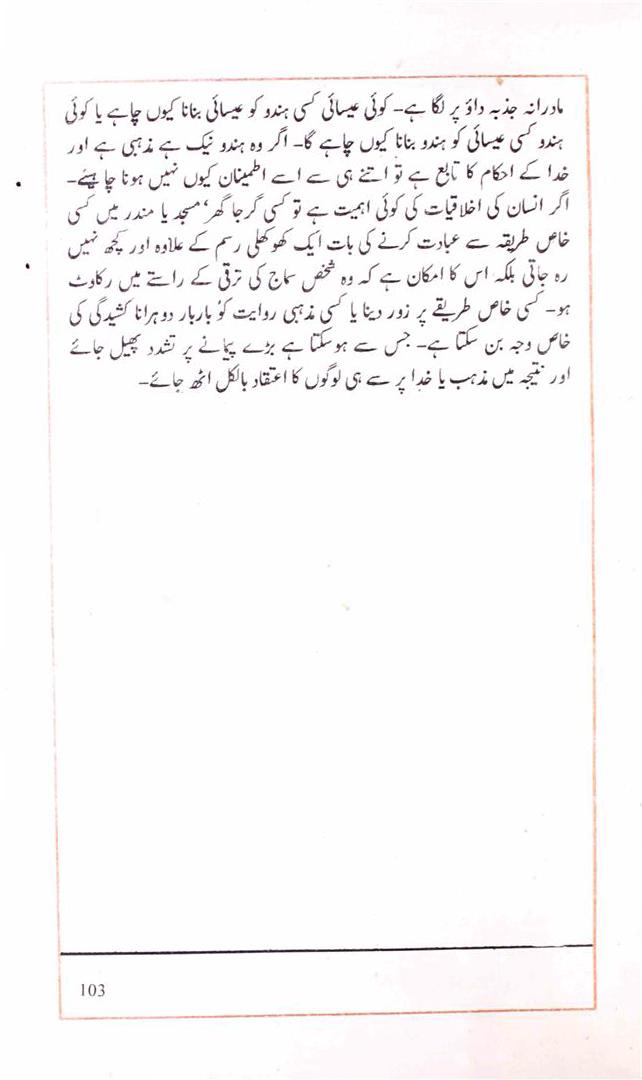 مادرانہ جذبہ داؤ پر لگا ہے۔ کوئی عیسائی کسی ہندو کو عیسائی بنانا کیوں چاہے یا کوئی
ہندو کسی عیسائی کو ہندو بنانا کیوں چاہے گا۔ اگر وہ ہندو نیک ہے مذہبی ہے اور
خدا کے احکام کا تابع ہے تو اتنے ہی سے اسے اطمینان کیوں نہیں ہونا چاہیئے۔
اگر انسان کی اخلاقیات کی کوئی اہمیت ہے تو کسی گرجا گھر، مسجد یا مندر میں کسی
خاص طریقہ سے عبادت کرنے کی بات ایک کھوکھلی رسم کے علاوہ اور کچھ نہیں
رہ جاتی بلکہ اس کا امکان ہے کہ وہ شخص سماج کی ترقی کے راستے میں رکاوٹ
ہو۔ کسی خاص طریقے پر زور دینا یا کسی مذہبی روایت کو باربار دوہرانا کشیدگی کی
خاص وجہ بن سکتا ہے۔ جس سے ہوسکتا ہے بڑے پیمانے پر تشدد پھیل جائے
اور نتیجہ میں مذہب یا خدا پر سے ہی لوگوں کا اعتقاد بالکل اٹھ جائے۔
103